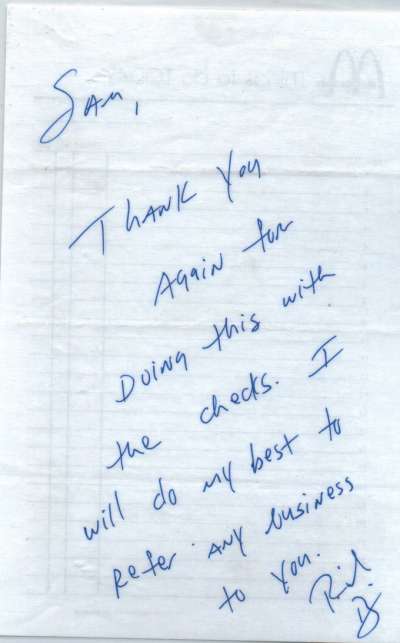 Sam,
Thank you
Again for
Doing this with
the checks. I
will do my best to
Refer any business
to you.